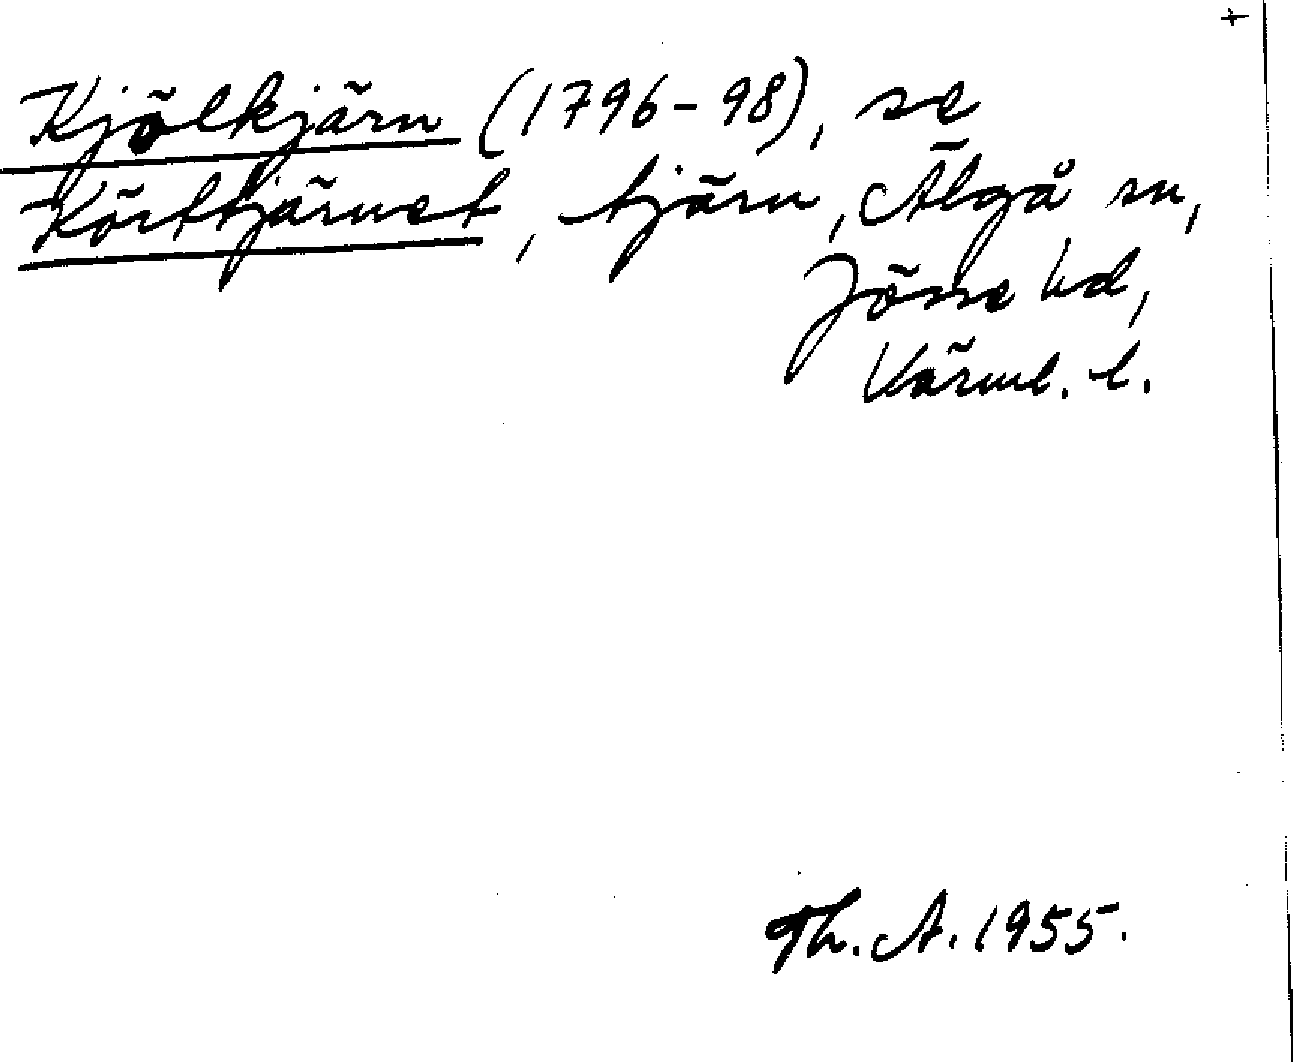 +
Kjölkjärn (1796-98), se
Körttjärnet, tjärn, Älgå sn,
Jösse hd,
Värml. l.
Th. A. 1955.